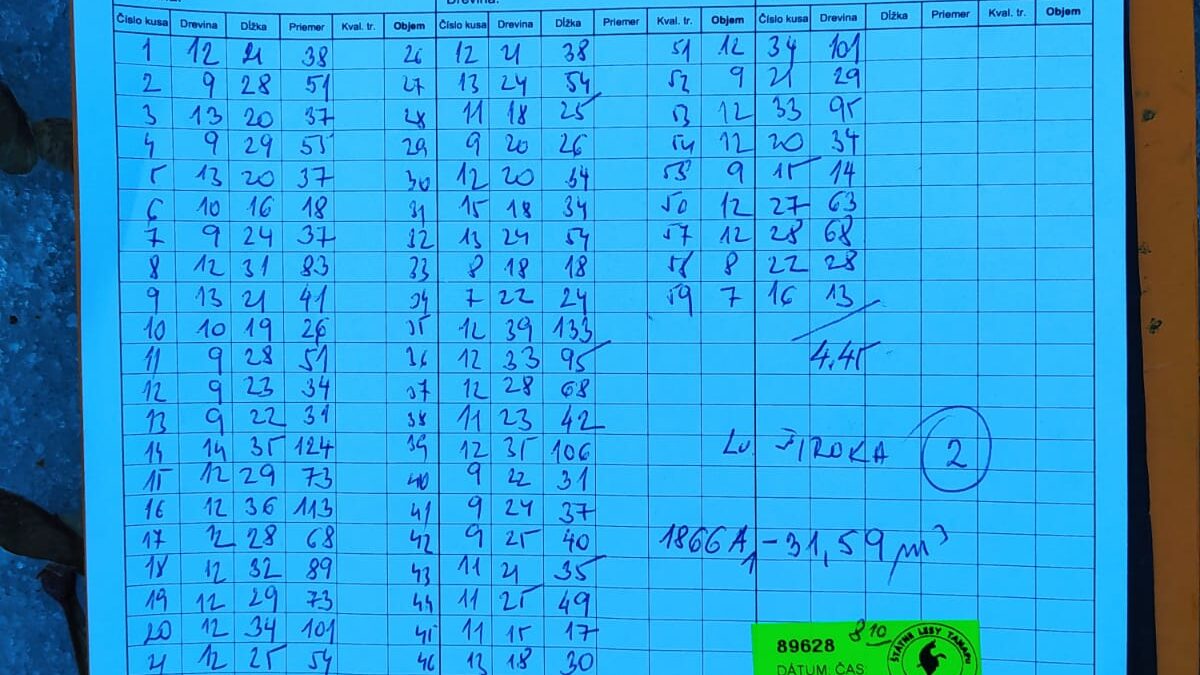 Číslo kusa Drevina Dĺžka Priemer Kval. tr. Objem Číslo kusa Drevina Dĺžka Priemer Kval. tr. Objem Číslo kusa Drevina Dĺžka Priemer Kval. tr. Objem
1 12 21 38 26 12 21 38 51 12 34 101
2 9 28 51 27 13 24 54 52 9 21 29
3 13 20 37 28 11 18 25 53 12 33 95
4 9 29 55 29 9 20 26 54 12 20 34
5 13 20 37 30 12 20 34 55 9 15 14
6 10 16 18 31 15 18 34 56 12 27 63
7 9 24 37 32 13 24 54 57 12 28 68
8 12 31 83 33 8 18 18 58 8 22 28
9 13 21 41 34 7 22 24 59 7 16 13
10 10 19 26 35 12 39 133
11 9 28 51 36 12 33 95 4.45
12 9 23 34 37 12 28 68
13 9 22 31 38 11 23 42
14 14 35 124 39 12 35 106 Lv. ŠIROKA 2
15 12 29 73 40 9 22 31
16 12 36 113 41 9 24 37
17 12 28 68 42 9 25 40 1866A1 - 31,59 m³
18 12 32 89 43 11 21 35
19 12 29 73 44 11 25 49
20 12 34 101 45 11 15 17
21 12 25 54 46 13 18 30
89628 810
DÁTUM ČAS
ŠTÁTNE LESY TANAPu